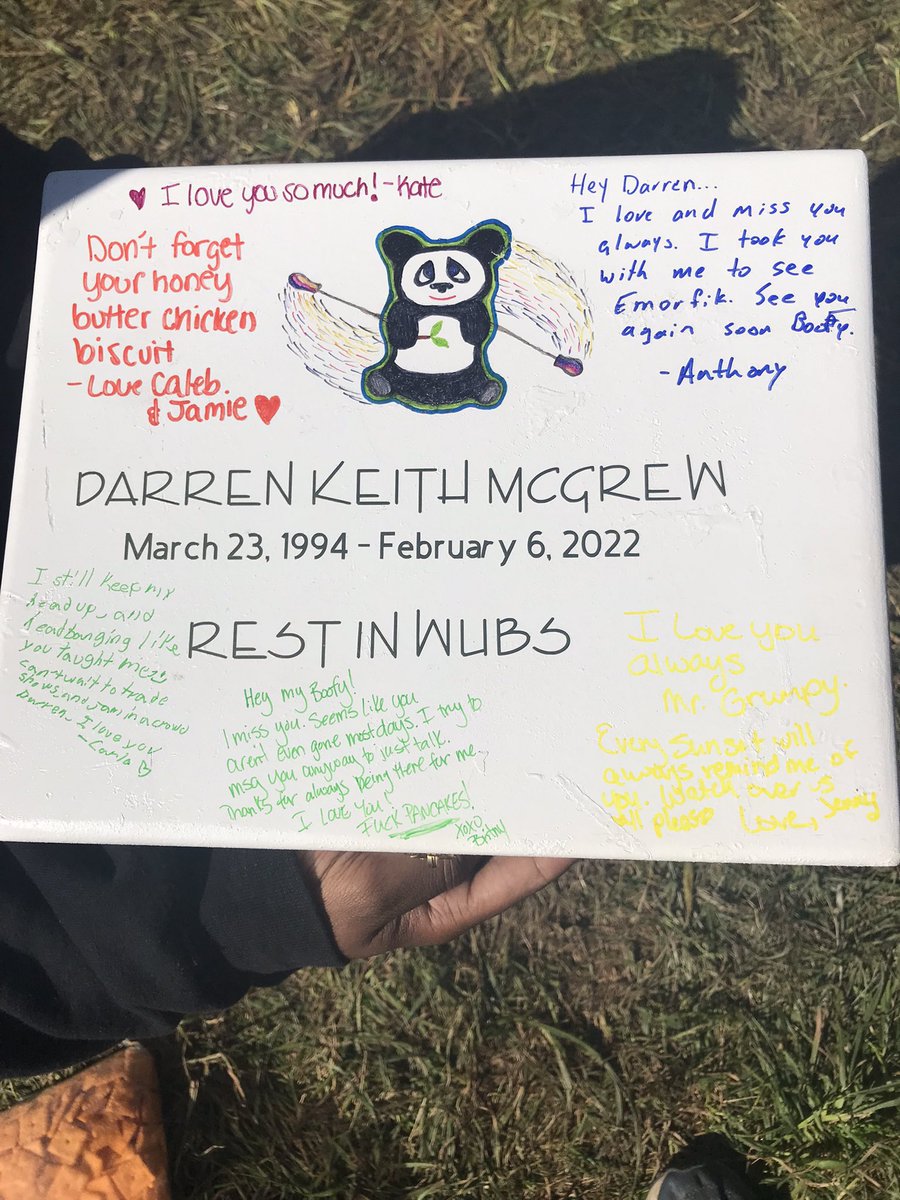 ♥ I love you so much! -Kate
Don't forget
your honey
butter chicken
biscuit
- Love Caleb.
& Jamie ♥
Hey Darren...
I love and miss you
always. I took you
with me to see
Emorfik. See you
again soon Boofy.
- Anthony
DARREN KEITH MCGREW
March 23, 1994 - February 6, 2022
REST IN WUBS
I still keep my
head up, and
headbanging like
you taught me :)
can't wait to trade
shows and jam in a crowd
Darren - I love you
Hey my Boofy!
I miss you. Seems like you
aren't even gone most days. I try to
msg you anyway to just talk.
Thanks for always being there for me
I Love You!
FUCK PANCAKES!
XOXO,
I Love you
always
Mr. Grumpy.
Every Sunset will
always remind me of
you. Watch over us
all please Love, Jenny